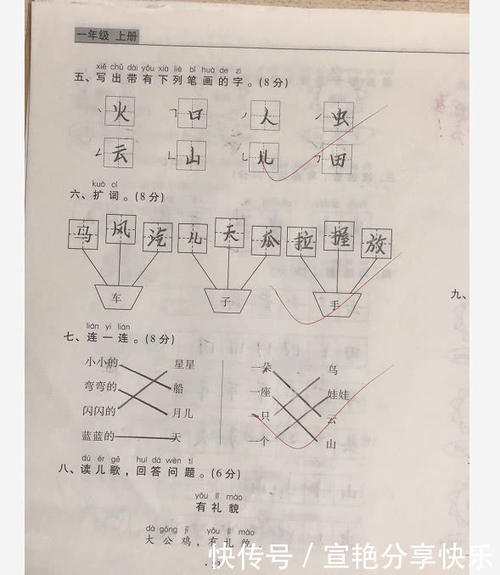 一年级 上册
xiě chū dài yǒu xià liè bǐ huà de zì
五、写出带有下列笔画的字。(8分)
火 口 人 虫
云 山 儿 田
kuò cí
六、扩词。(8分)
马 风 汽 儿 天 瓜 拉 握 放
车 子 手
lián yi lián
七、连一连。(8分)
小小的 星星 一朵 鸟
弯弯的 船 一座 娃娃
闪闪的 月儿 一只 云
蓝蓝的 天 一个 山
dú ér gē huí dá wèn tí
八、读儿歌，回答问题。(6分)
yǒu lǐ mào
有礼貌
dà gōng jī yǒu lǐ mào
大公鸡，有礼貌
九、
快传号／宣艳分享快乐